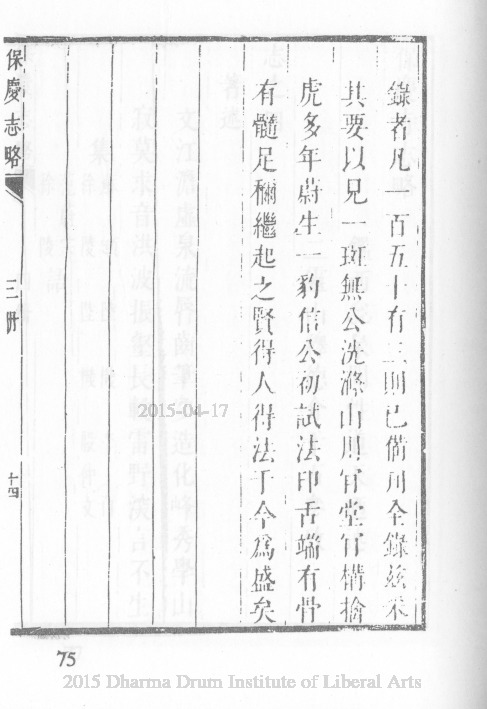 錄者凡一百五十有二則已備刋全錄茲采
其要以見一斑無公洗滌山川肯堂肯構擒
虎多年蔚生一豹信公初試法印舌端有骨
有髓足稱繼起之賢得人得法于今爲盛矣
保慶志略
三册
十四
75
2015-04-17
2015 Dharma Drum Institute of Liberal Arts